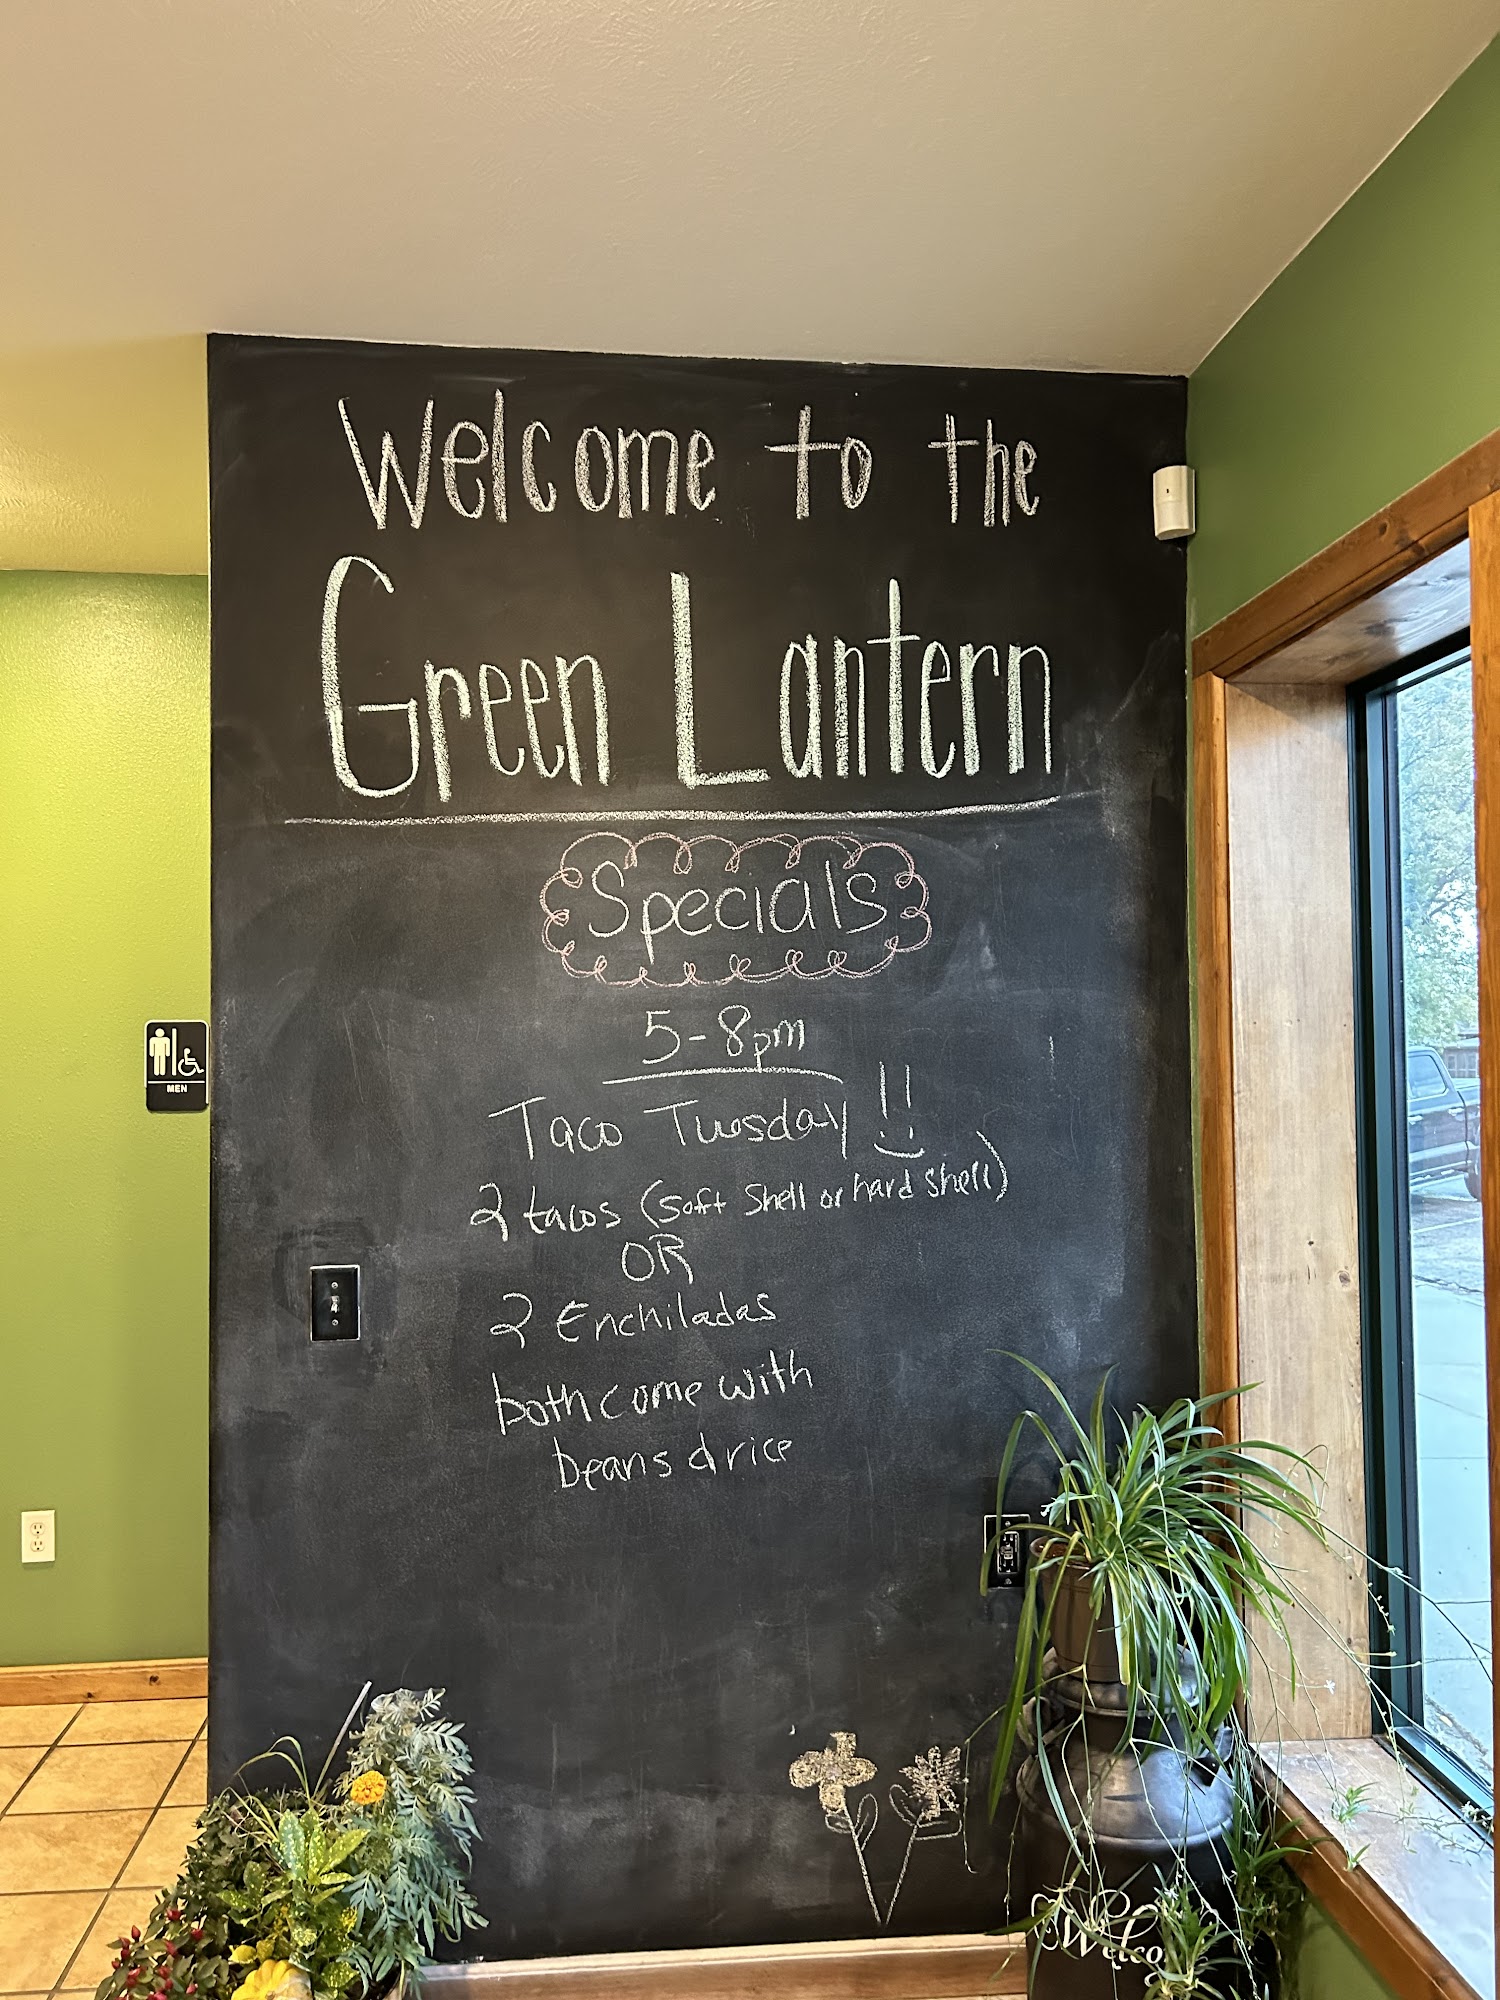 Welcome to the
Green Lantern
Specials
5-8pm
Taco Tuesday!!
2 tacos (soft shell or hard shell)
OR
2 Enchiladas
both come with
beans & rice
MEN